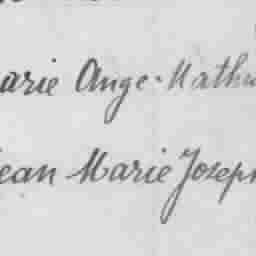 arie Ange-Mathu
ean Marie Joseph